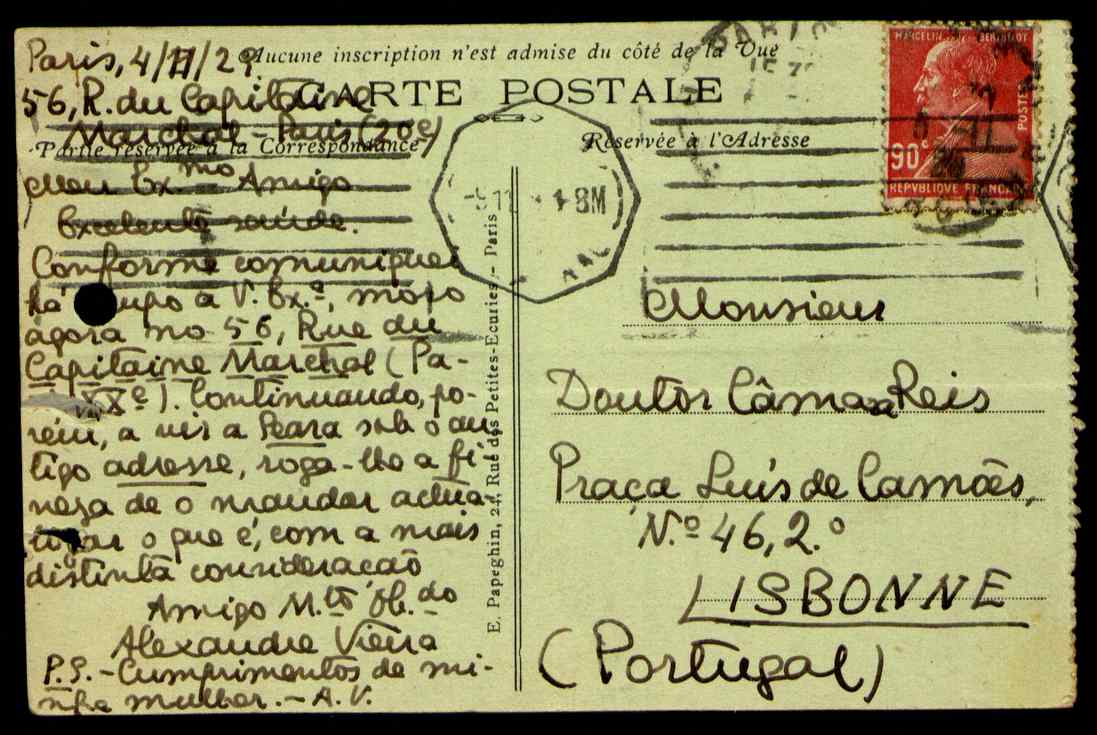 Paris, 4/11/29
Aucune inscription n'est admise du côté de la Vue
CARTE POSTALE
56, R. du Capitaine
Marchal - Paris (20e)
Partie réservée à la Correspondance
Réservée à l'Adresse
Meu Ex.mo Amigo
Excelente saúde.
Conforme comuniquei
há tempo a V. Ex.ª, moro
agora no 56, Rue du
Capitaine Marchal (Pa-
XXe). Continuando, po-
rém, a vir a Seara sob o an-
tigo adresse, roga-lhe a fi-
neza de o mandar actua-
lizar o que é, com a mais
distinta consideração
Amigo M.to Ob.do
Alexandre Vieira
P.S. - Cumprimentos de mi-
nha mulher. - A.V.
E. Papeghin, 24, Rue des Petites-Ecuries - Paris
Monsieur
Doutor Câmara Reis
Praça Luís de Camões,
N.º 46, 2.º
LISBONNE
(Portugal)
MARCELIN BERTHELOT
POSTES
90c
REPVBLIQVE FRANCAISE
PARIS
-5 11
8M